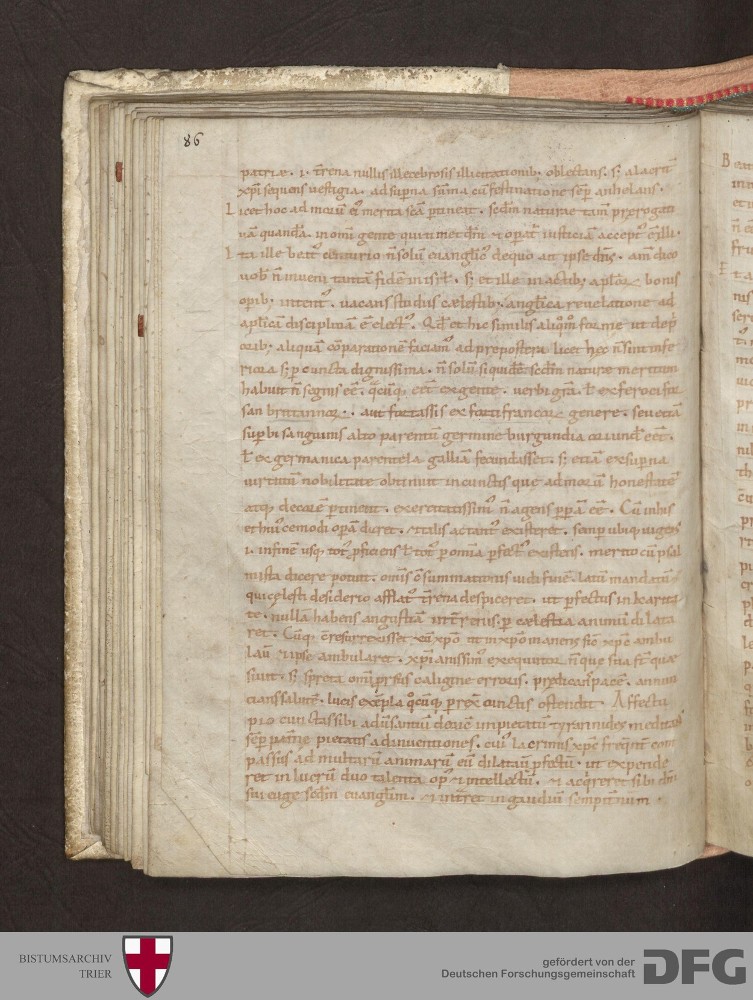 86
patriæ. & terrena nullis illecebrosis illicitationib; oblectans. s; alacrit
xp̄i sequens uestigia. ad sup̄na summa cū festinatione semp̄ anhelans.
Licet hoc ad morū ei merita scā ptineat. scdm naturæ tam̄ prerogati
uā quandā. in omi gente qui timet dm̄ & opat iusticiā accept ē illi.
Ita ille beat centurio n̄ solū euanglic de quo ait ipse dn̄s. am̄ dico
uob n̄ inueni tantā fidē in isrł. s; et ille in actib; aplor bonis
opib; intent. uacans studiis cælestib; anglica reuelatione ad
aplicā disciplinā ē elect. Qd et hic similis aliqm forme ut
orib; aliquā cōparationē faciam ad preposterū licet hec n̄ sint infe
riora s; p cuncta dignissima. n̄ solū siquidē scdm naturæ meritum
habuit n̄ segnis eē. ex gente. uerbi grā. ł ex feroci
san brittannor. aut fortassis ex forti francor genere. seu etiā
supbi sanguinis alto parentū germine burgundia oriund eēt.
ł ex germanica parentela galliā fecundasset. s; etiā ex supna
uirtutū nobilitate obtinuit in cunctis que ad morū honestatē
atq; decorē ptineut. exercitatissim n̄ agens ppā eē. Cū in his
et huicemodi opā daret. & talis actant existeret. semp ubiq; uigens
i. in finē usq; tot pficiens ł tot p omia pfect existens. merito cū psal
mista dicere potuit. omis cōsummationis uidi finē. latū mandatū
qui cęlesti desiderio afflat trēna despiceret. ut pfectus in karita
te. nullā habens angustiā in trēnis. p cælestia animū dilata
ret. cresurrexisset cū xpō ut in xpō manens sic xp̄c ambu
lau & ipse ambularet. xpi amissim exequutor n̄ que sua st quæ
siuit. s; spreta omi prsus caligine erroris. predicans pacē. annun
cians salutē. lucis exēpla p rex cunctis ostendit. Affectu
pio cunctas sibi aduersantiū deuicit impietatum tyrannides meditans
semp patrię pietatis adinuentiones. cui lacrimis xp̄c com
passus ad multarū animarū eū dilatauit pfectū. ut expende
ret in lucrū duo talenta op & intellectū. & acqreret sibi dni
sui euge scdm euanglium. & intret in gaudiū sempitnum.
BISTUMSARCHIV
TRIER
gefördert von der
Deutschen Forschungsgemeinschaft
DFG